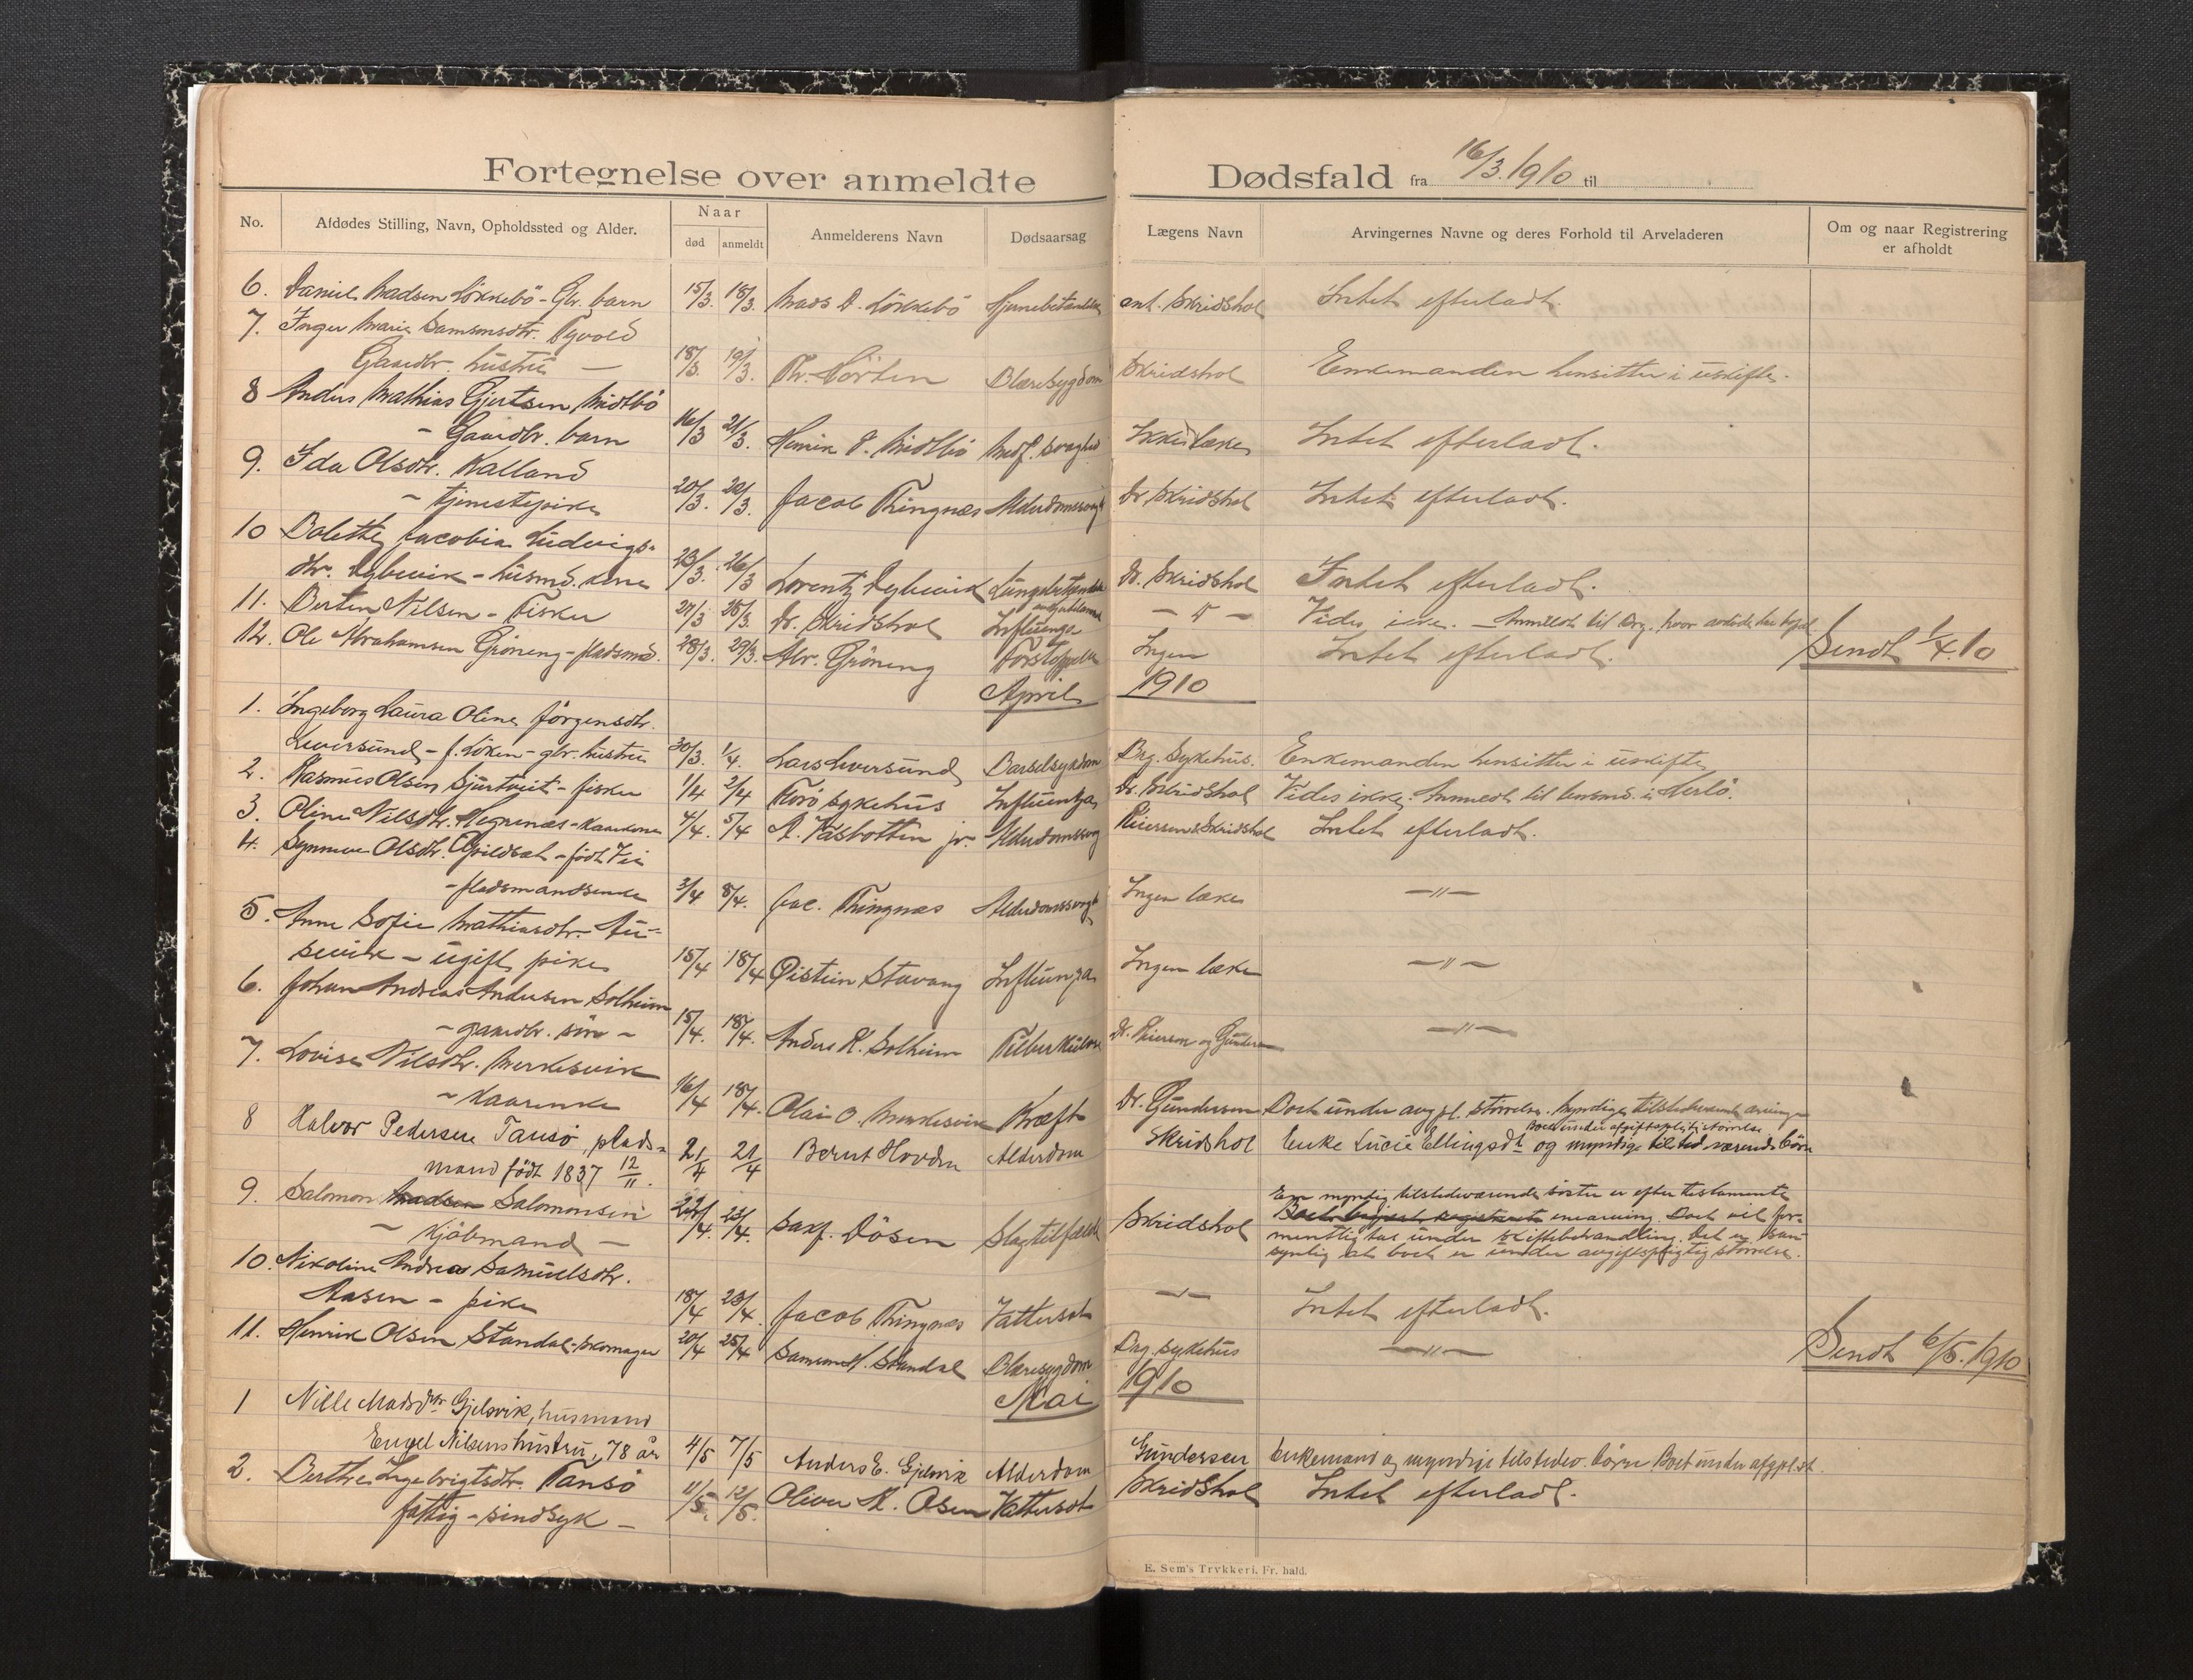 Fortegnelse over anmeldte
Dødsfald fra 16/3 1910 til
No.
Afdødes Stilling, Navn, Opholdssted og Alder.
Naar
død
anmeldt
Anmelderens Navn
Dødsaarsag
Lægens Navn
Arvingernes Navne og deres Forhold til Arveladeren
Om og naar Registrering
er afholdt
6. Daniel Madsen Løkkebö - Gbr. barn 15/3. 18/3. Mads D. Løkkebö ant. Skridshol Intet efterladt.
7. Inger Marie Samsonsdtr. Tyvold
Gaardbr. hustru — 18/3. 19/3. Blæresygdom Skridshol Enkemanden hensitter i uskifte.
8 Anders Mathias Gjertsen Midtbö
- Gaardbr. barn 16/3 21/3. Henrik Midtbö Medf. svaghed Ikke læke Intet efterladt.
9. Ida Olsdtr. Kalland
- tjenestepike 20/3. 20/3. Jacob Thingnæs Alderdomssvagh Dr. Skridshol Intet efterladt.
10 Dolette Jacobia Ludvigs-
dtr. Dybevik - husmd. kone 23/3. 26/3 Lorentz Dybevik Lungebetændelse Dr. Skridshol Intet efterladt.
11. Berten Nilsen - Fisker 27/3 28/3. Dr. Skridshol Influenga — " — Vides ikke. - Anmeldt til Brg. hvor avdøde har
12. Ole Abrahamsen Gröneng - pladsmd. 28/3. 29/3. Abr. Gröneng Forstoppelse Ingen Intet efterladt. Sendt 1/4.10
April 1910
1. Ingeborg Laura Oline Jörgensdtr.
Leversund - f. Löken - gbr. hustru 30/3. 1/4. Lars Leversund Barselsygdom Brg. Sykehus. Enkemanden hensitter i uskifte
2. Rasmus Olsen Sjurtveit - fisker 1/4 2/4 Florö sykehus Influenza Dr. Skridshol Vides ikke. Anmeldt til lensmd. i Herlö.
3. Oline Nilsdtr. Hegrenæs - Kaarkone 4/4. 5/4 A. Vasbotten jr. Alderdomssvag Reierson & Skridshol Intet efterladt.
4. Synneve Olsdtr. - født Vie
- pladsmandsenke 3/4 8/4. Jac. Thingnæs Alderdomssvagh Ingen læke — " —
5. Anne Sofie Mathiasdtr. Au-
sevik - ugift pike 15/4 18/4 Øistein Stavang Influenza Ingen læke — " —
6. Johan Andreas Andersen Solheim
- gaardbr. sön - 15/4. 18/4. Anders R. Solheim Tuberkulose Dr. Reierson og Gundersen — " —
7. Lovise Nilsdtr. Merkesvik
- Kaarenke 16/4 18/4. Olai O. Merkesvik Kræft Dr. Gundersen Boet under avg.pl. störrelse. Myndige tilstedeværende arvinger
8 Halvor Pedersen Tansö, plads-
mand født 1837 12/11. 21/4 21/4 Bernt Hovden Alderdom Skridshol Enke Lucie Ellingsdtr og myndige tilstedværende börn
Boet under afgiftspligtig störrelse
9. Salomon Madsen Salomonsen
- Kjöbmand - 22/4. 23/4. Saxf. Dösen Slagtilfælde Skridshol En myndig tilstedeværende söster er efter testamente
enearving. Boet vil for-
mentlig tas under skiftebehandling. Det er san-
synlig at boet er under avgiftspligtig störrelse.
10. Nikoline Andrea Samuelsdtr.
Aasen - pike 18/4 23/4. Jacob Thingnæs Vattersot — " — Intet efterladt.
11. Henrik Olsen Standal - skomager 20/4 25/4 Samson H. Standal Blæresygdom Brg. sykehus — " — Sendt 6/5.1910
Mai 1910
1 Nille Madsdtr Gjelsvik, husmand
Engel Nilsens hustru, 78 år 4/5 7/5 Anders E. Gjelsvik Alderdom Gundersen Enkemand og myndige tilstedev. börn. Boet under afgpl. st.
2. Berthe Ingebrigtsdtr. Tansö
fattig - sindsyk - 11/5. 12/5. Oliver M. Osen Vattersot Skridshol Intet efterladt.
E. Sem's Trykkeri, Fr. hald.